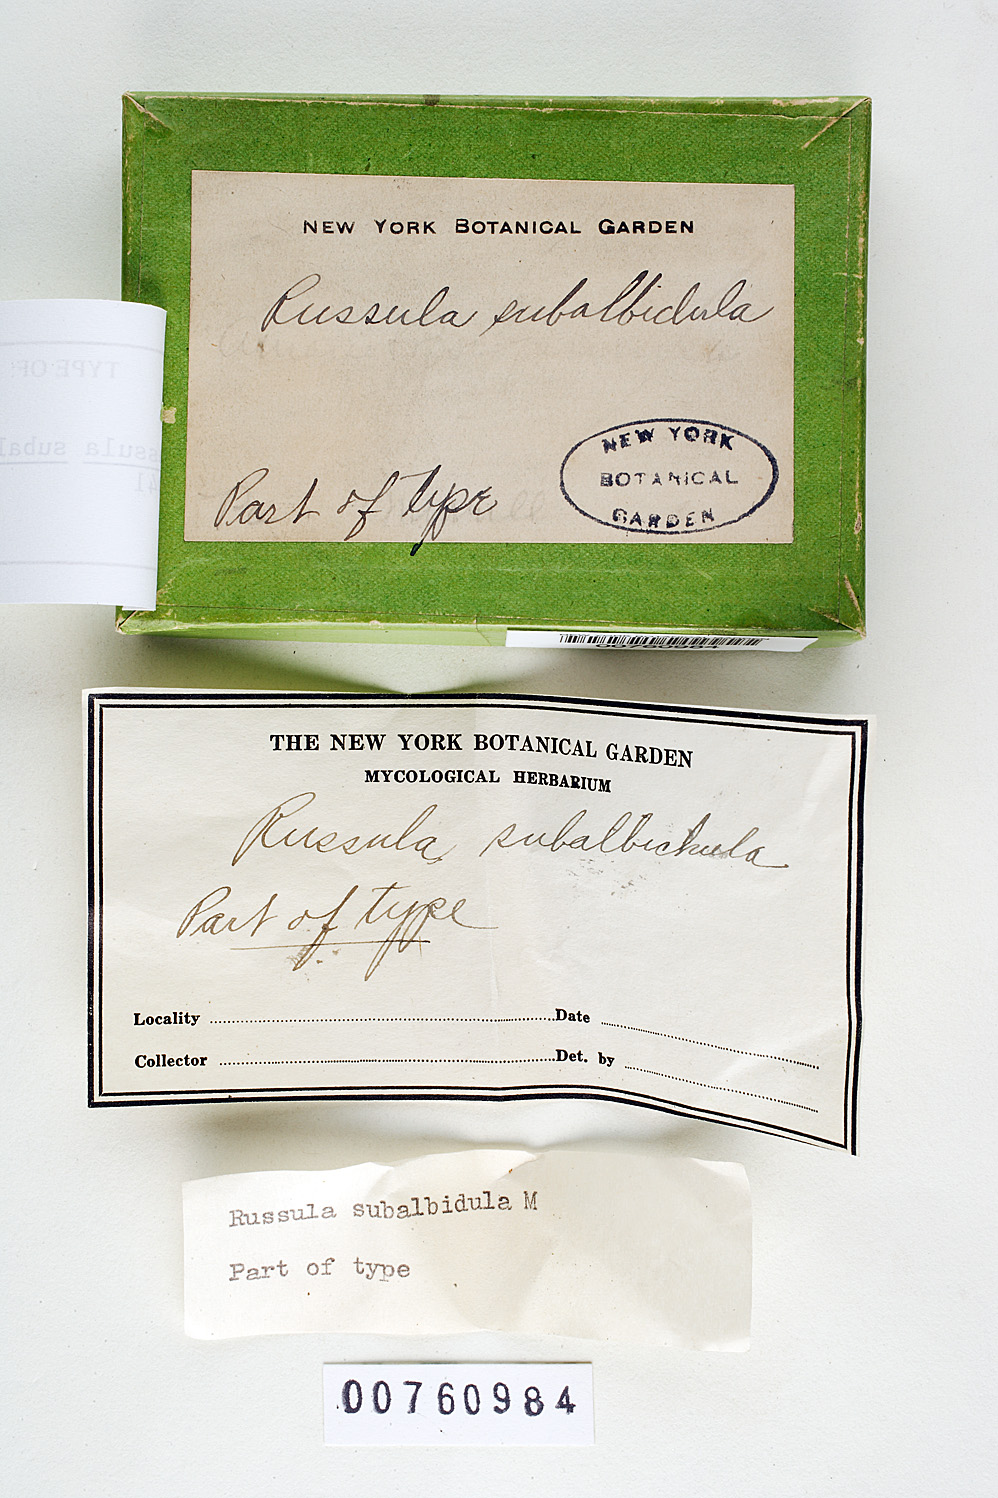 NEW YORK BOTANICAL GARDEN
Russula subalbidula
Part of type
NEW YORK
BOTANICAL
GARDEN
TYPE OF:
ssula subal
41
00760984
THE NEW YORK BOTANICAL GARDEN
MYCOLOGICAL HERBARIUM
Russula subalbidula
Part of type
Locality Date
Collector Det. by
Russula subalbidula M
Part of type
00760984